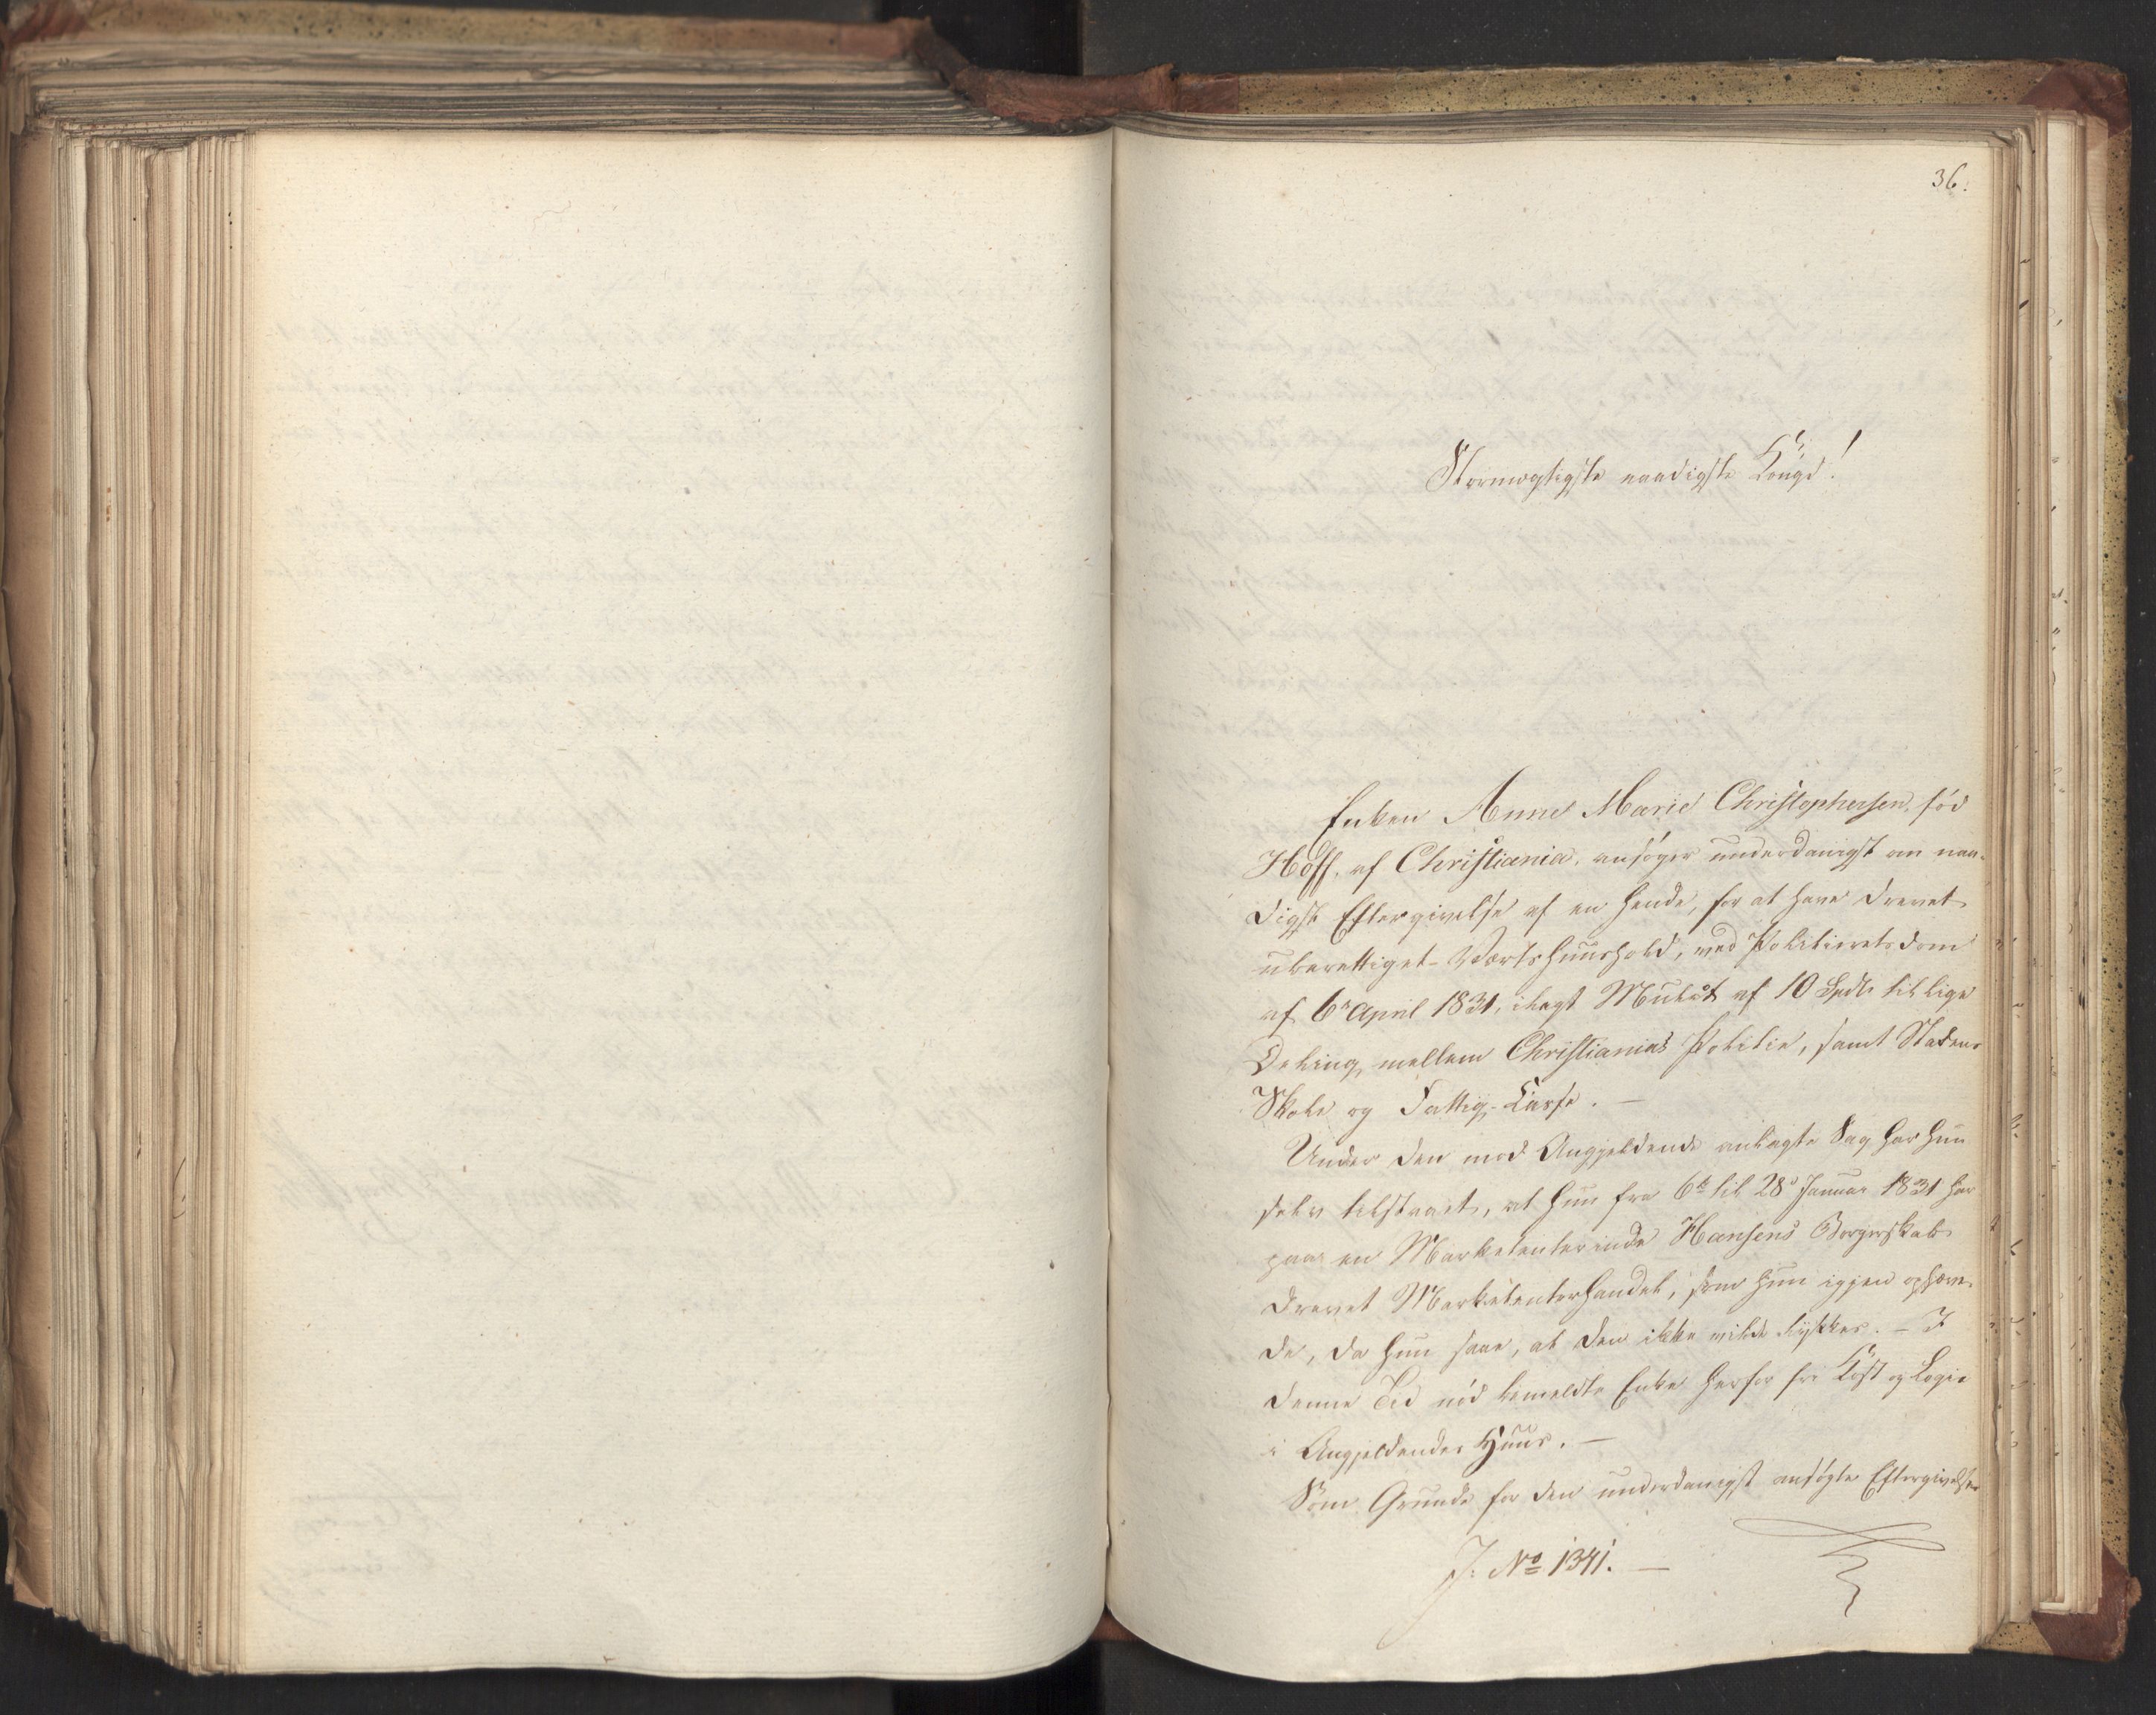 36.
Stormægtigste naadigste Konge!
Enken Anne Marie Christophersen, fød
Hoff, af Christiania, ansøger underdanigst om naa-
digst Eftergivelse af en hende, for at have drevet
uberettiget Værtshuushold, ved Politieretsdom
af 6te April 1831, ilagt Mulct af 10 Spdlr til lige
Deling mellem Christianias Politie, samt Stadens
Skole og Fattig-Casse. —
Under den mod Angjeldende anlagte Sag har hun
selv tilstaaet, at hun fra 6te til 28de Januar 1831 har
paa en Marketenterinde Hansens Borgerskab
drevet Marketenterhandel, som hun igjen ophæve-
de, da hun saae, at den ikke vilde lykkes. – I
denne Tid nød bemeldte Enke herfor fri Kost og Logie
i Angjeldendes Huus. —
Som Grunde for den underdanigst ansøgte Eftergivelse
J. No 1341. —